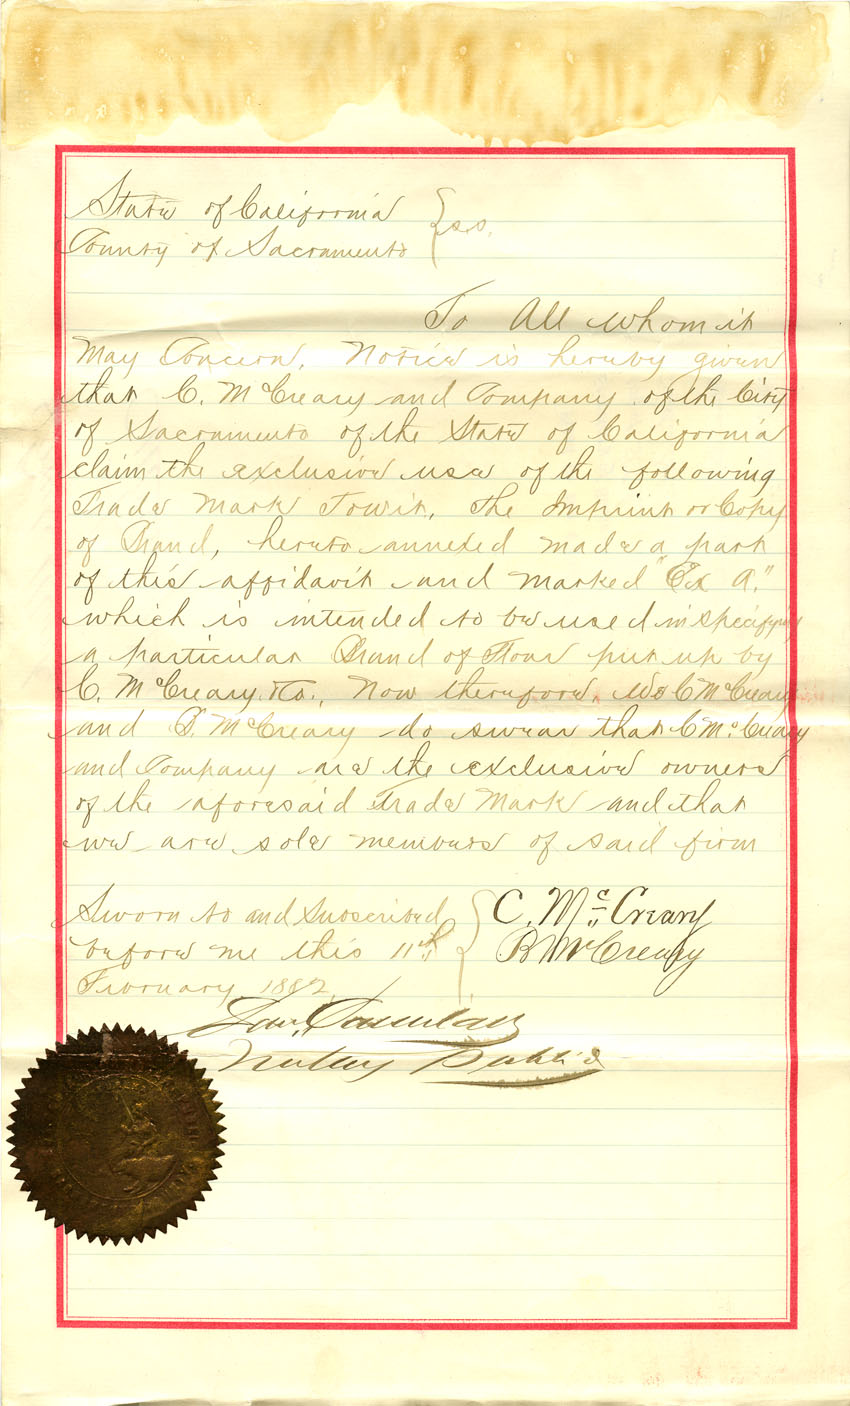 State of California } ss.
County of Sacramento
To All whom it
May Concern, Notice is hereby given
that C. McCreary and Company of the City
of Sacramento of the State of California
claim the exclusive use of the following
Trade Mark Towit, the Imprint or Copy
of Brand, hereto annexed made a part
of this affidavit and marked "Ex A."
which is intended to be used in specifying
a particular Brand of Flour put up by
C. McCreary & Co., Now therefore We C McCreary
and B. McCreary do swear that C McCreary
and Company are the exclusive owners
of the aforesaid Trade Mark and that
we are sole members of said firm
Sworn to and Subscribed } C. McCreary
before me this 11th } B McCreary
February 1882
Notary Public